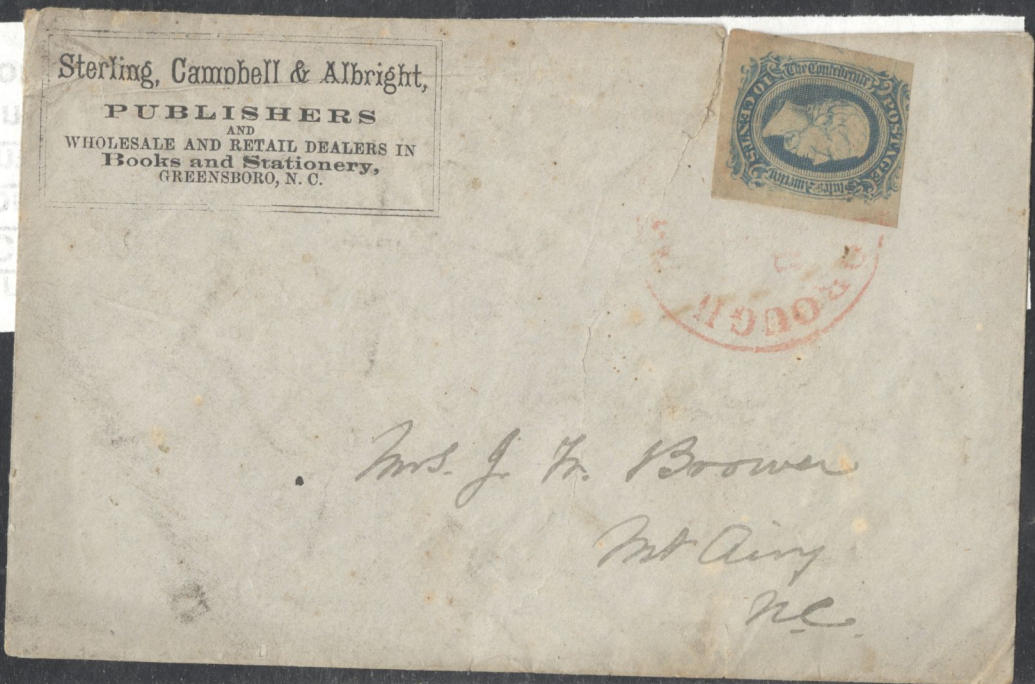 Sterling, Campbell & Albright,
PUBLISHERS
AND
WHOLESALE AND RETAIL DEALERS IN
Books and Stationery,
GREENSBORO, N. C.
The Confederate
States America
POSTAGE
10 CENTS
OROUGH
Mrs. J. W. Brower
Mt Airy
N.C.